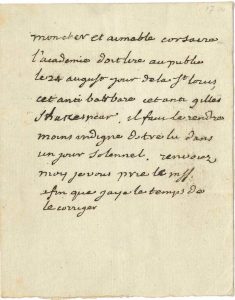 mon cher et aimable corsaire
l'academie doit lire au public
le 24 auguste jour de la St louis
cet anti barbare cet anti gilles
Shakespear, il faut le rendre
moins indigne d'etre lu dans
un jour solennel, renvoiez
moy je vous prie le mss.
afin que jaye le temps de
le corriger